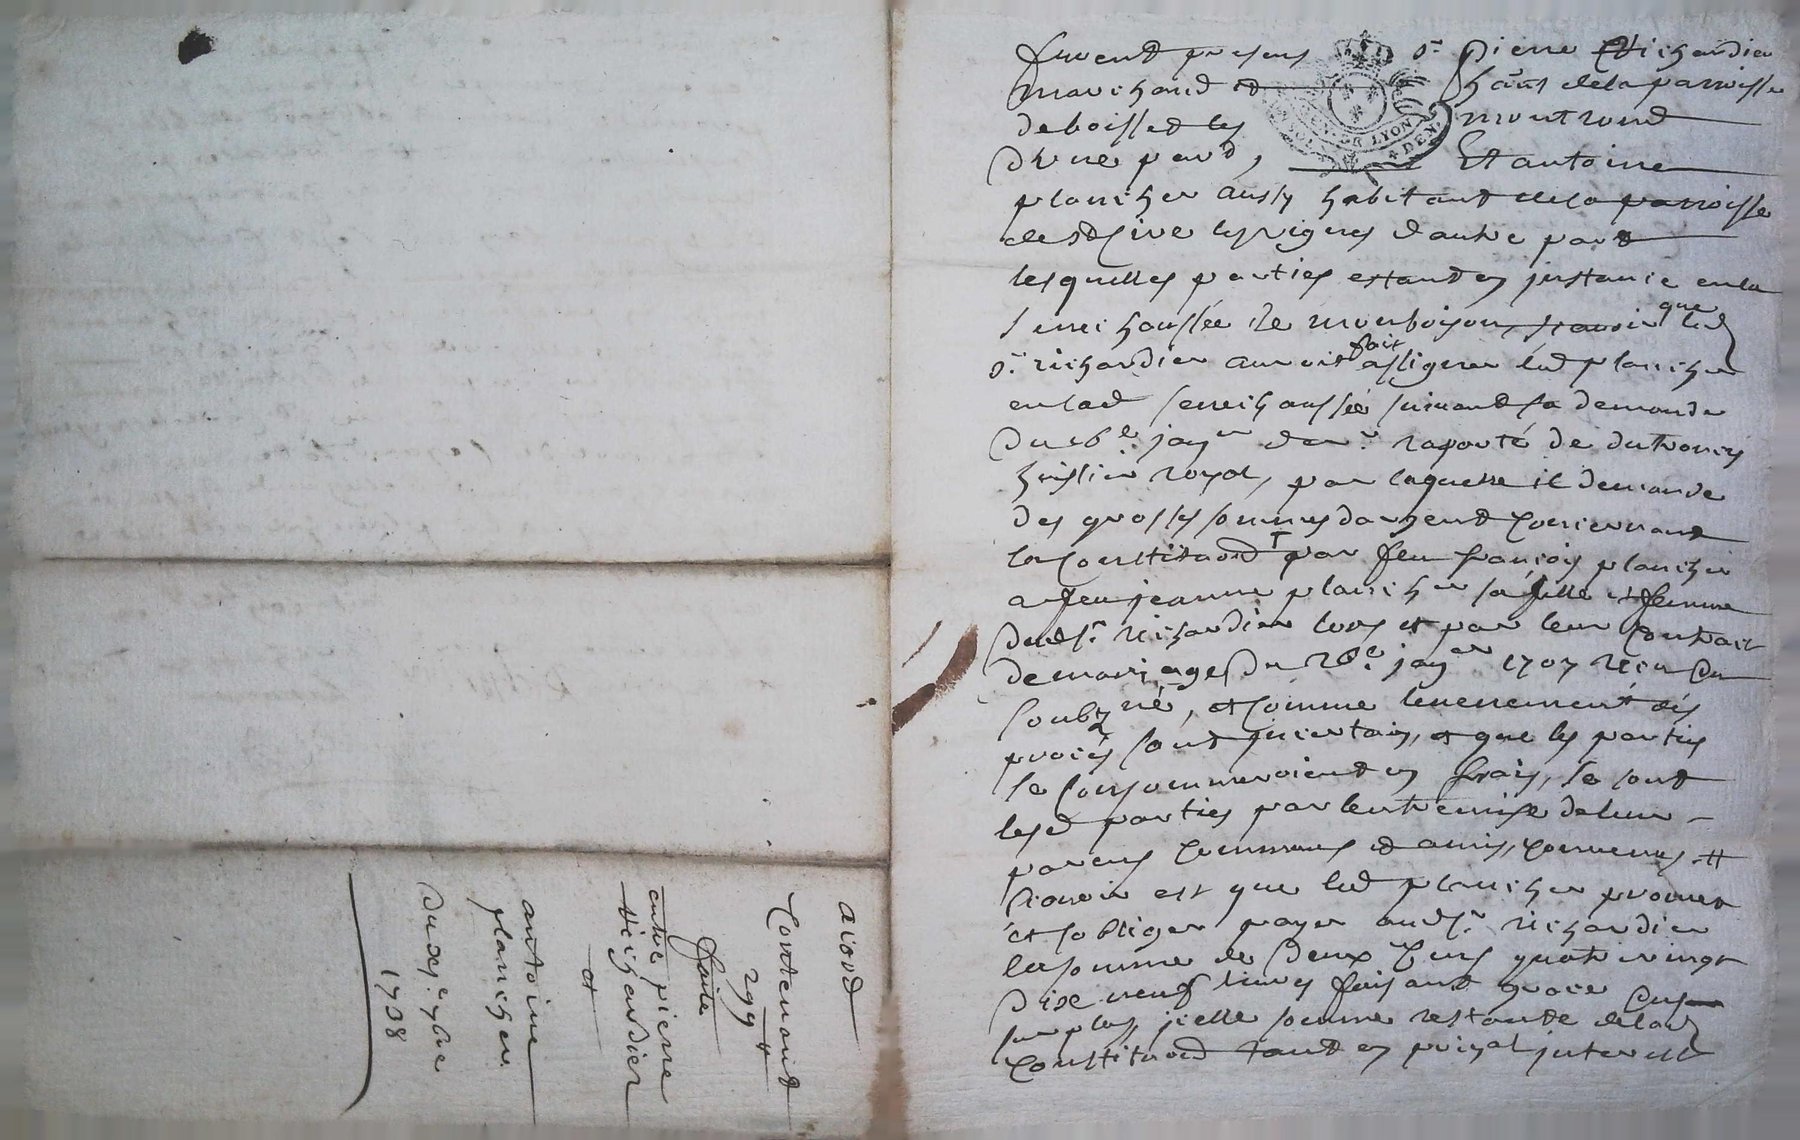 furent presens sr pierre Richardier
marchand et hānt dela parroisse
de boisset les montrond
d'vne part, Et antoine
plancher aussy habitant dela parroisse
de st Cire les vignes d'autre part
lesquelles parties estant en jnstance en la
senechaussée de monbrison scavoir que led
sr richardier auroit fait assigner led plancher
en lad senechaussée suivant sa demande
du 16e janer der raporté de dutroncy
huissier royal, par laquelle il demande
des grosses sommes dargent concernant
la constitaōn par feu francois plancher
a feu jeanne plancher sa fille et femme
dud sr richardier lors et par leur contract
de mariage du 26e janer 1707 receu du
soubzné, et comme levenement des
procés sont jncertain, et que les parties
se consommeroient en frais, se sont
lesd parties par lentremise de leur
parens communs et amis, convenus
scavoir est que led plancher promet
et soblige payer aud sr richardier
la somme de deux cens quatre vingt
dixe neuf livres faisant grace du
surplus, jcelle somme restante de lad
constitaōn tant en prinal jnterest
acord
Contenant
299 ₶
faite
entre pierre
Richardier
et
antoine
plancher
du xe xbre
1738
GEN. DE LYON